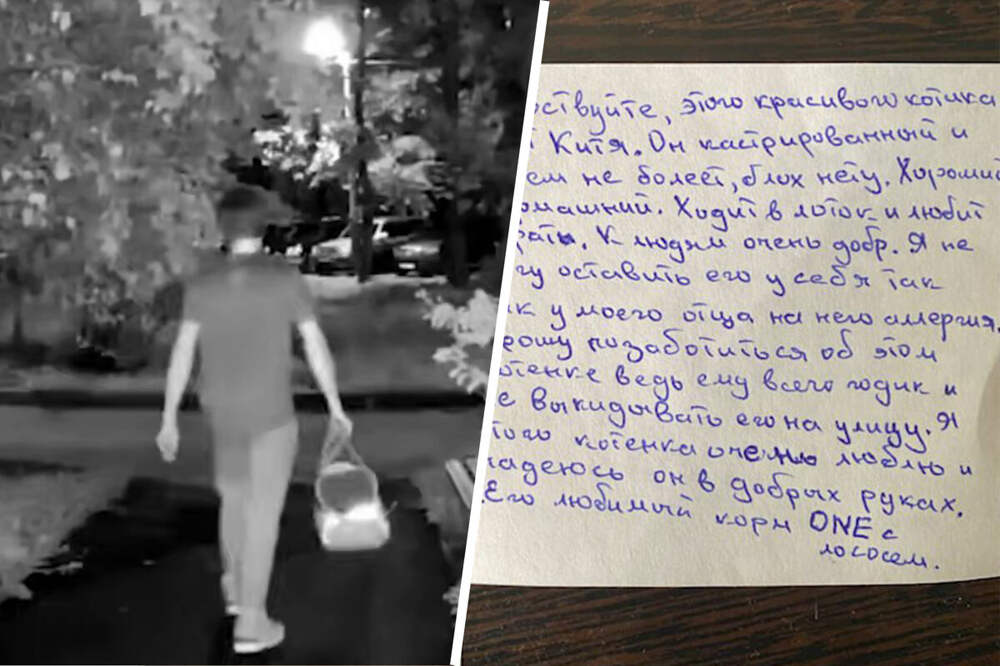 ствуйте, этого красивого котика
Китя. Он кастрированный и
ем не болеет, блох нету. Хороший
омашний. Ходит в лоток и любит
рать. К людям очень добр. Я не
гу оставить его у себя так
ак у моего отца на него аллергия.
рошу позаботиться об этом
отенке ведь ему всего годик и
е выкидывать его на улицу. Я
того котенка очень люблю и
адеюсь он в добрых руках.
Его любимый корм ONE с
лососем.